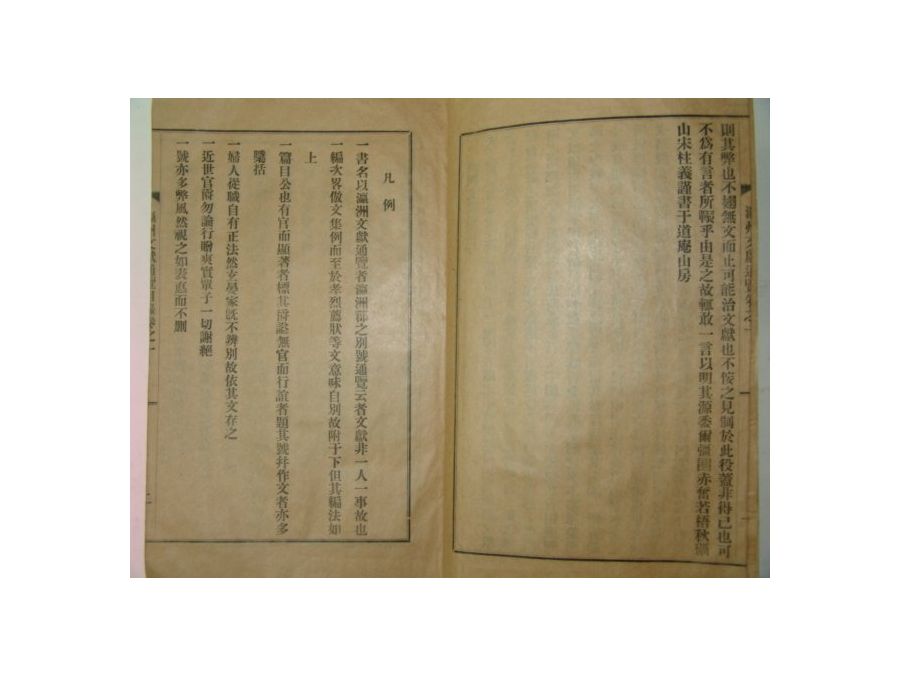 則其弊也不翅無文而止可能治文獻也不佞之見制於此役蓋非得已也可
不爲有言者所冁乎由是之故輒敢一言以明其源委爾彊圉赤奮若梧秋瀛
山宋柱義謹書于道庵山房
凡例
一書名以瀛洲文獻通覽者瀛洲郡之別號通覽云者文獻非一人一事故也
一編次畧倣文集例而至於孝烈薦狀等文意味自別故附于下但其編法如
上
一篇目公也有官而顯著者標其爵謚無官而行誼者題其號幷作文者亦多
櫽括
一婦人從職自有正法然玄晏家旣不辨別故依其文存之
一近世官爵勿論行贈爽實單子一切謝絕
一號亦多弊風然視之如表悳而不刪